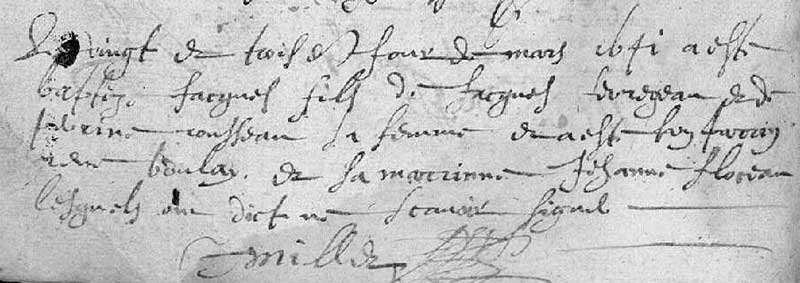 Le vingt et troisie jour de mars 1671 a este
baptize Jacques fils de Jacques et de
perrine rousseau sa femme et a este son parain
rene boulay et sa marrinne Jehanne floceau
lesquels ont dict ne scavoir signer
Millet